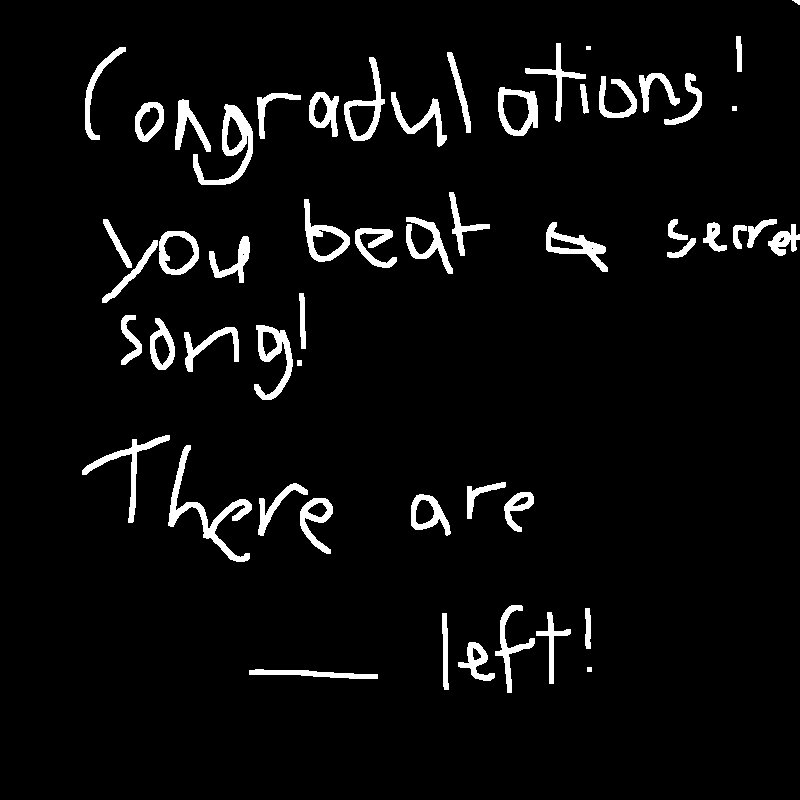 Congradulations!
you beat a secret
song!
There are
___ left!